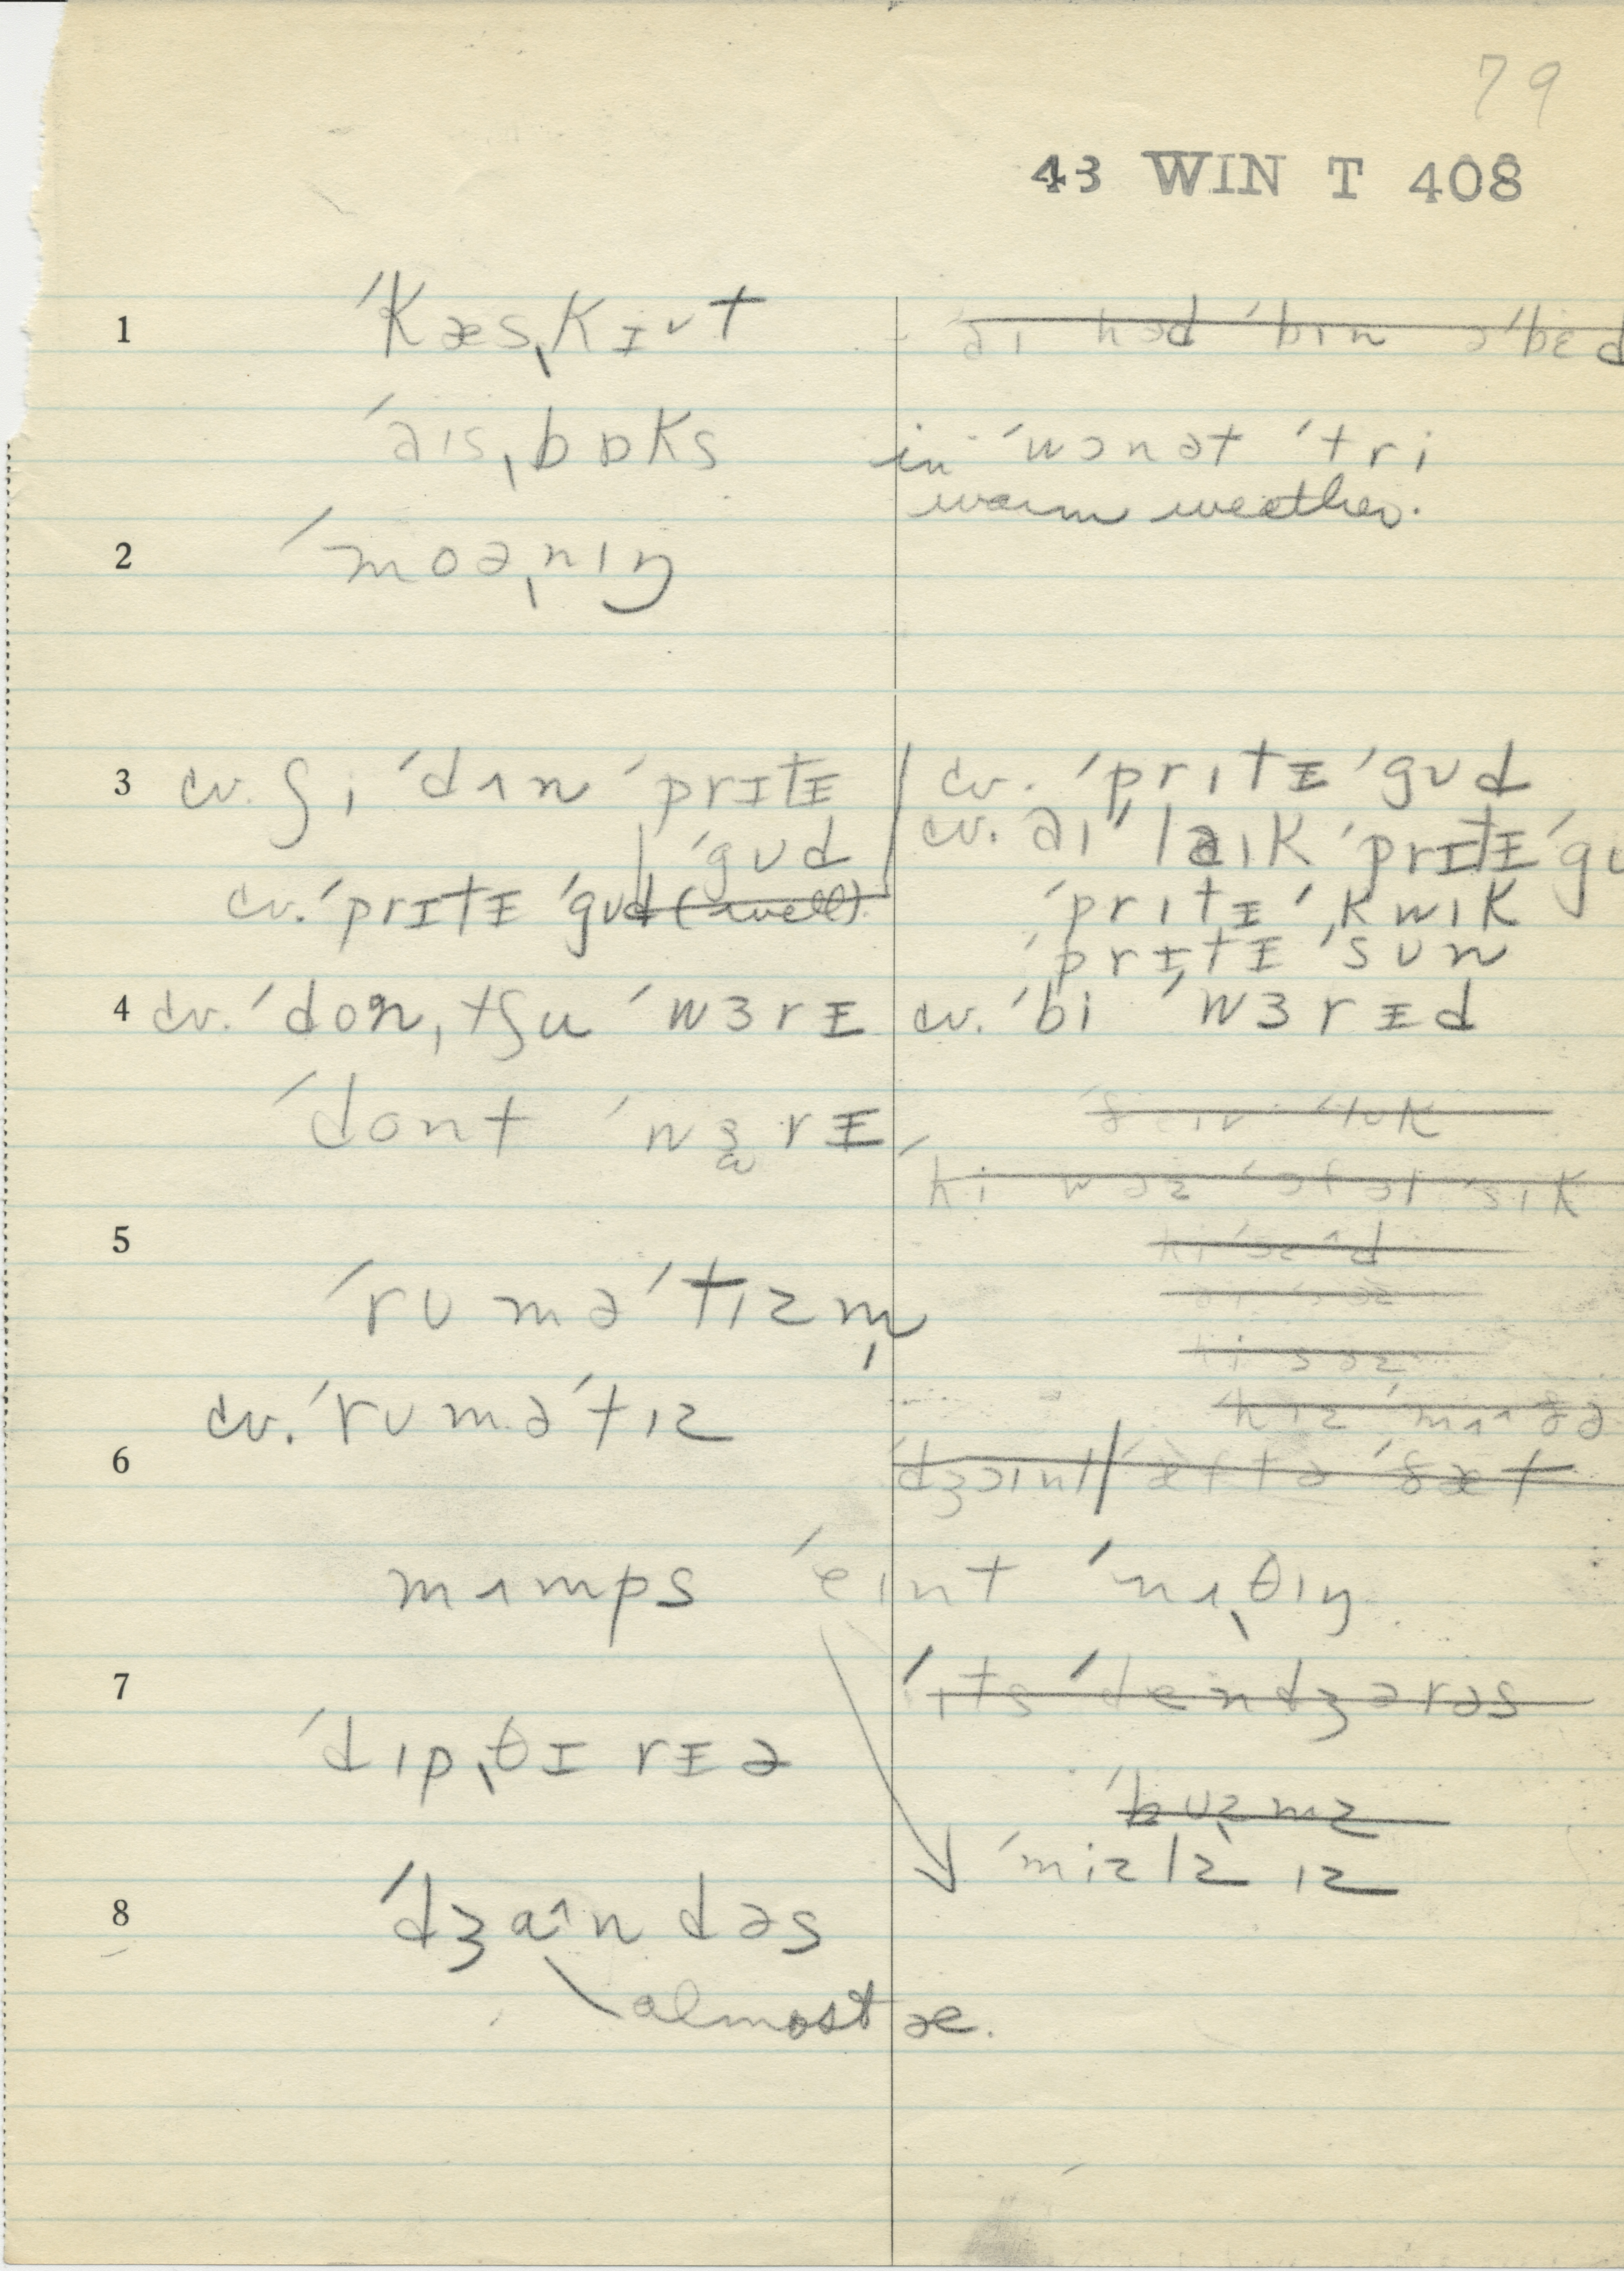 79
43 WIN T 408
1 ˈkæsˌkɪᵛt
ˈaɪsˌbɒks
in ˈwɔnət ˈtri
warm weather.
2 ˈmoəˌnɪŋ
3 cv. ʃi ˈdʌn ˈprɪtɪ ˈgʊd
cv. ˈprɪtɪ ˈgʊd (well).
cv. ˈprɪtɪ ˈgʊd
cv. aɪ ˈlaɪk ˈprɪtɪ ˈgʊ
ˈprɪtɪ ˈkwɪk
ˈprɪtɪ ˈsun
4 cv. ˈdonˌtʃu ˈwɜrɪ
cv. ˈbi ˈwɜrɪd
ˈdont ˈwɜrɪ
hi wəz
5
ˈrumə ˈtɪzm̩
cv. ˈrumə ˈtɪz
6
dʒɔɪnt / ˈæftə ˈðæt
mʌmps ˈeɪnt ˈnʌˌθɪŋ
7
ˈɪts ˈdendʒərəs
ˈdɪpˌθɪrɪə
ˈbuzmz
ˈmizlz ɪz
8 ˈdʒaˆndəs
almost æ.